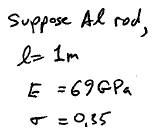 Suppose Al rod,
l = 1m
E = 69GPa
σ = 0,35